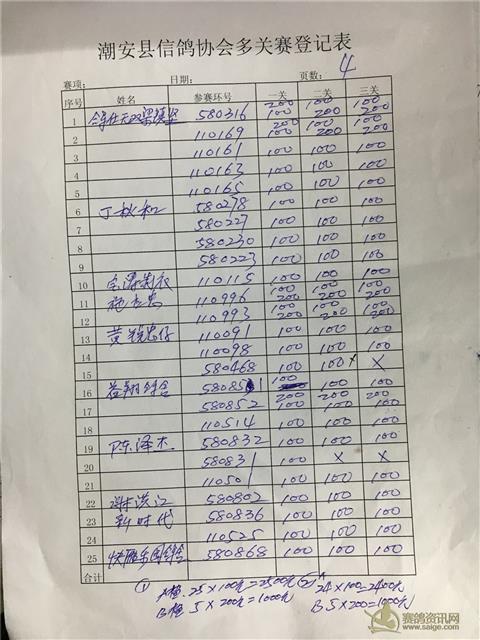 潮安县信鸽协会多关赛登记表
赛项： 日期： 页数： 4
序号 姓名 参赛环号 一关 二关 三关
1 580316 200 100 100 200 100 200
2 110169 200 100 100 200 100 200
3 110161 100 100 100
4 110163 100 100 100
5 110165 100 100 100
6 丁秋和 580278 100 100 100
7 580227 100 100 100
8 580230 100 100 100
9 580223 100 100 100
10 110115 100 100 100
11 110996 100 200 100 200 100 200
12 110993 100 200 100 200 100 200
13 110091 100 100 100
14 110098 100 100 100
15 580468 100 100 × ×
16 580851 100 100 100
17 580852 200 100 200 100 200 100
18 110514 100 100 100
19 陈泽杰 580832 100 100 100
20 580831 100 × ×
21 110501 100 100 100
22 谢洪江 580802 100 100 100
23 新时代 580836 100 100 100
24 110525 100 100 100
25 580868 100 100 100
合计
① A组. 25×100元=2500元 ② A 24×100=2400元
B组 5×200元=1000元 B 5×200=1000元
赛鸽资讯网
www.saige.com